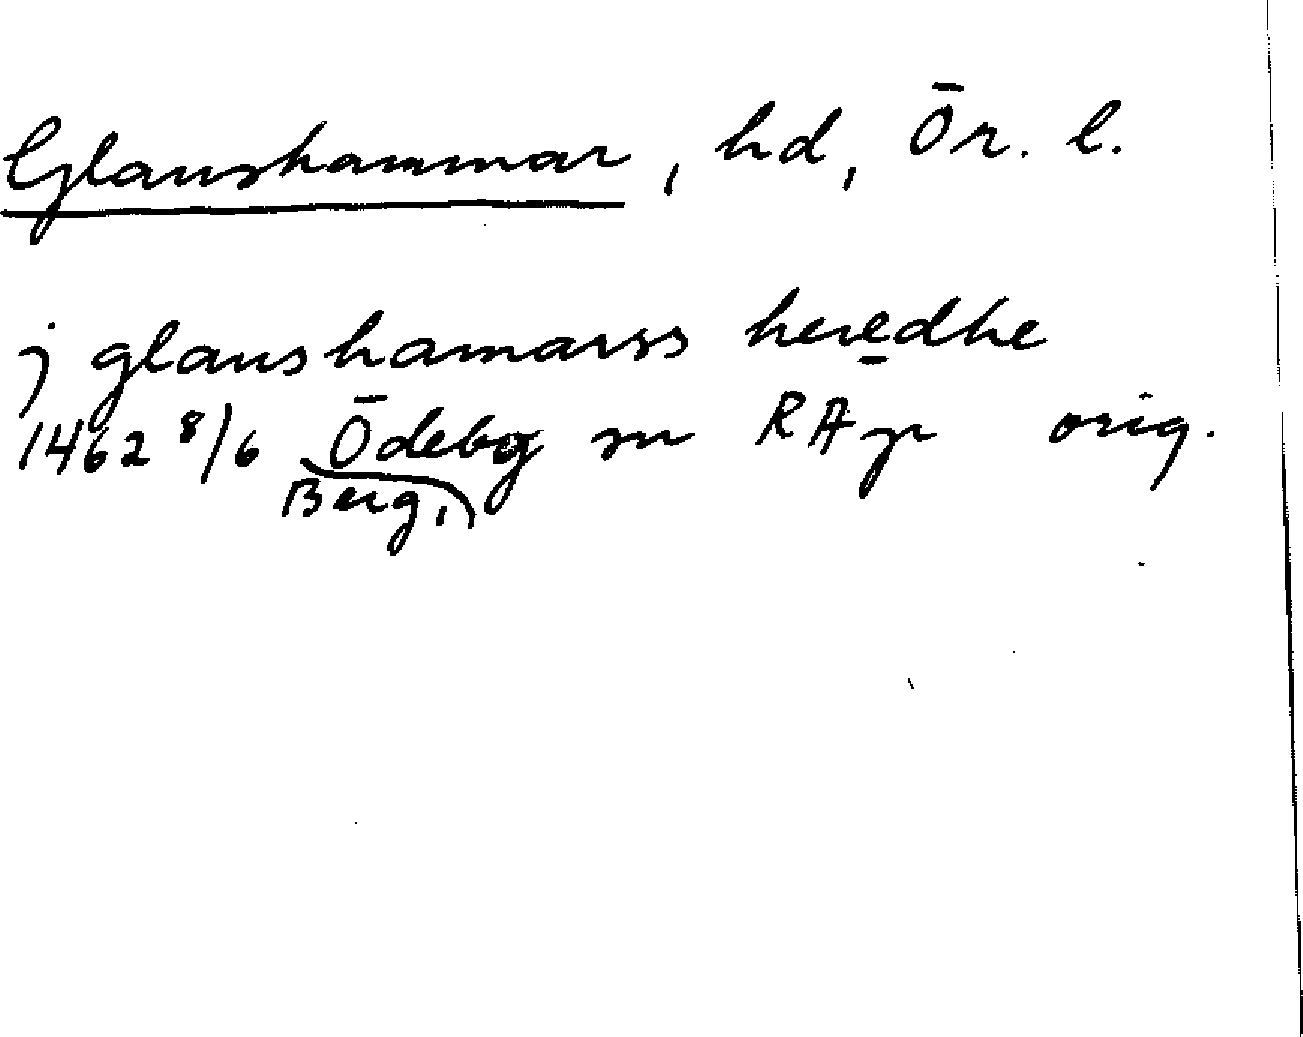 Glanshammar, hd, Ör. l.
j glanshamarss heredhe
1462 8/6 Ödeby sn RAp orig.
Berg.